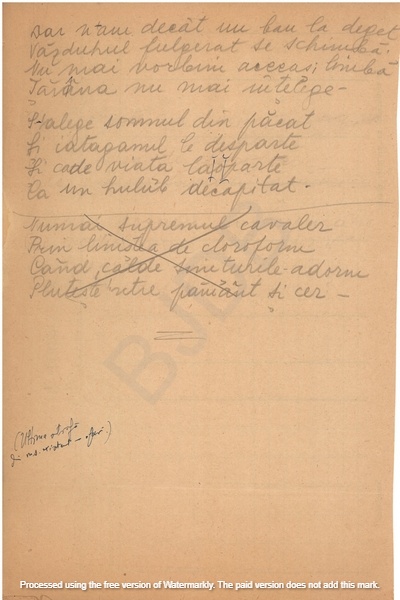 Dar n'am decât un ban la deget
Văzduhul fulgerat se schimbă.
Nu mai vorbim aceeaşi limbă
Ţărâna nu mai înţelege -
S'alege somnul din păcat
Şi iataganul le desparte
Şi cade viaţa la o parte
Ca un hulub decapitat.
Numai supremul cavaler
Prin liniştea de cloroform
Când calde sunturile adorm
Pluteşte între pământ şi cer -
(Ultima strofă
în ms.
BJ
Processed using the free version of Watermarkly. The paid version does not add this mark.